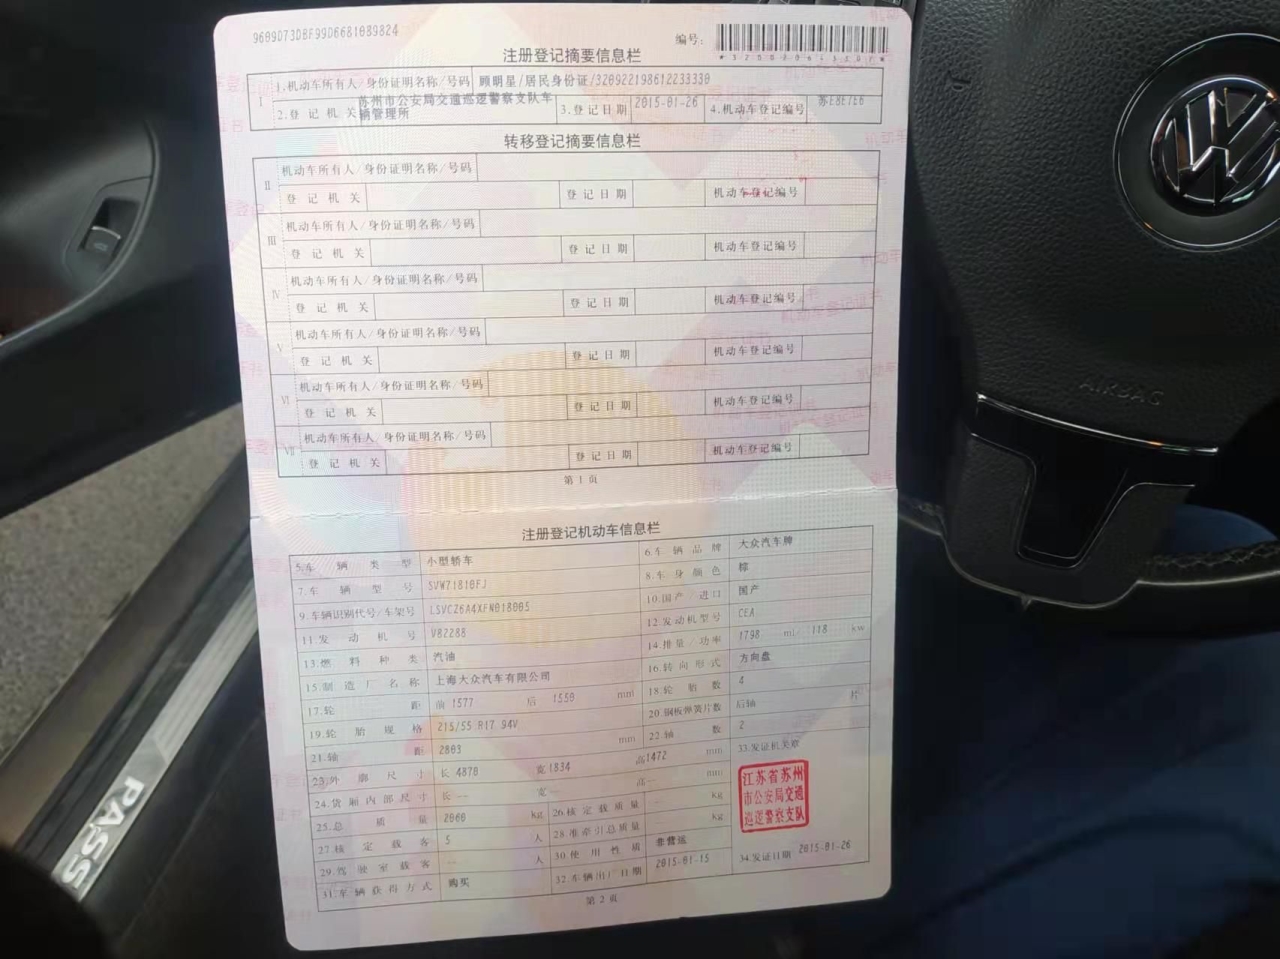 9609D73DBF99D6681089824
编号:
注册登记摘要信息栏
I
1.机动车所有人/身份证明名称/号码 顾明星/居民身份证/320922198612233330
2.登记机关 苏州市公安局交通巡逻警察支队车辆管理所 3.登记日期 2015-01-26 4.机动车登记编号
转移登记摘要信息栏
II
机动车所有人/身份证明名称/号码
登记机关 登记日期 机动车登记编号
III
机动车所有人/身份证明名称/号码
登记机关 登记日期 机动车登记编号
IV
机动车所有人/身份证明名称/号码
登记机关 登记日期 机动车登记编号
V
机动车所有人/身份证明名称/号码
登记机关 登记日期 机动车登记编号
VI
机动车所有人/身份证明名称/号码
登记机关 登记日期 机动车登记编号
VII
机动车所有人/身份证明名称/号码
登记机关 登记日期 机动车登记编号
第1页
注册登记机动车信息栏
5.车辆类型 小型轿车 6.车辆品牌 大众汽车牌
7.车辆型号 SVW71810FJ 8.车身颜色 棕
9.车辆识别代号/车架号 LSVCZ6A4XFN018005 10.国产/进口 国产
11.发动机号 V82288 12.发动机型号 CEA
13.燃料种类 汽油 14.排量/功率 1798 ml/ 118 kw
15.制造厂名称 上海大众汽车有限公司 16.转向形式 方向盘
17.轮距 前 1577 后 1550 mm 18.轮胎数 4
19.轮胎规格 215/55 R17 94V 20.钢板弹簧片数 后轴 片
21.轴距 2803 mm 22.轴数 2
23.外廓尺寸 长 4870 宽 1834 高 1472 mm 33.发证机关章
24.货厢内部尺寸 长 -- 宽 -- 高 -- mm
25.总质量 2060 kg 26.核定载质量 -- kg
27.核定载客 5 人 28.准牵引总质量 -- kg
29.驾驶室载客 -- 人 30.使用性质 非营运
31.车辆获得方式 购买 32.车辆出厂日期 2015-01-15 34.发证日期 2015-01-26
江苏省苏州
市公安局交通
巡逻警察支队
第2页
AIRBAG
PASS